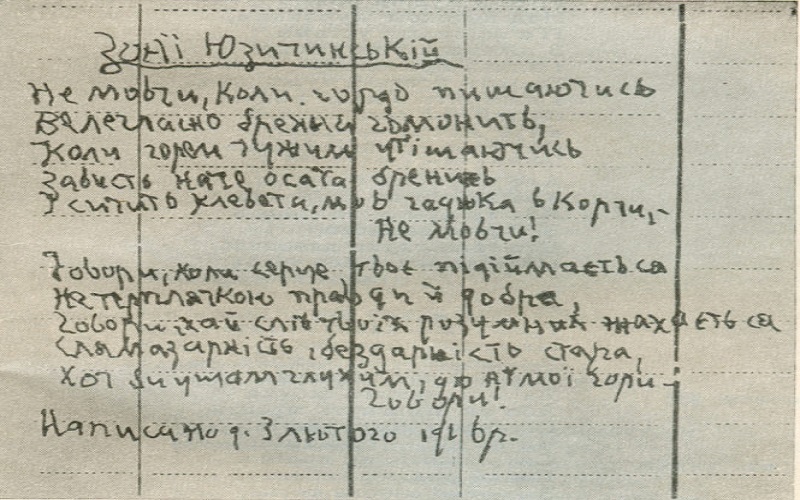 Зонї Юзичинській
Не мовчи, коли гордо пишаючись
Велегласно брехня гомонить,
Коли горем чужим утішаючись
Зависть наче оса та бренить
І сичить клевета, мов гадюка в корчи,-
Не мовчи!
Говори, коли серце твоє підіймаєть ся
Нетерплячкою правди й добра,
Говори, хай слів твоїх розумних жахаєть ся
Слямазарність, бездарність стара,
Хоч би ушам глухим, до німої гори -
Говори!
Написано д. 3 лютого 1916 р.